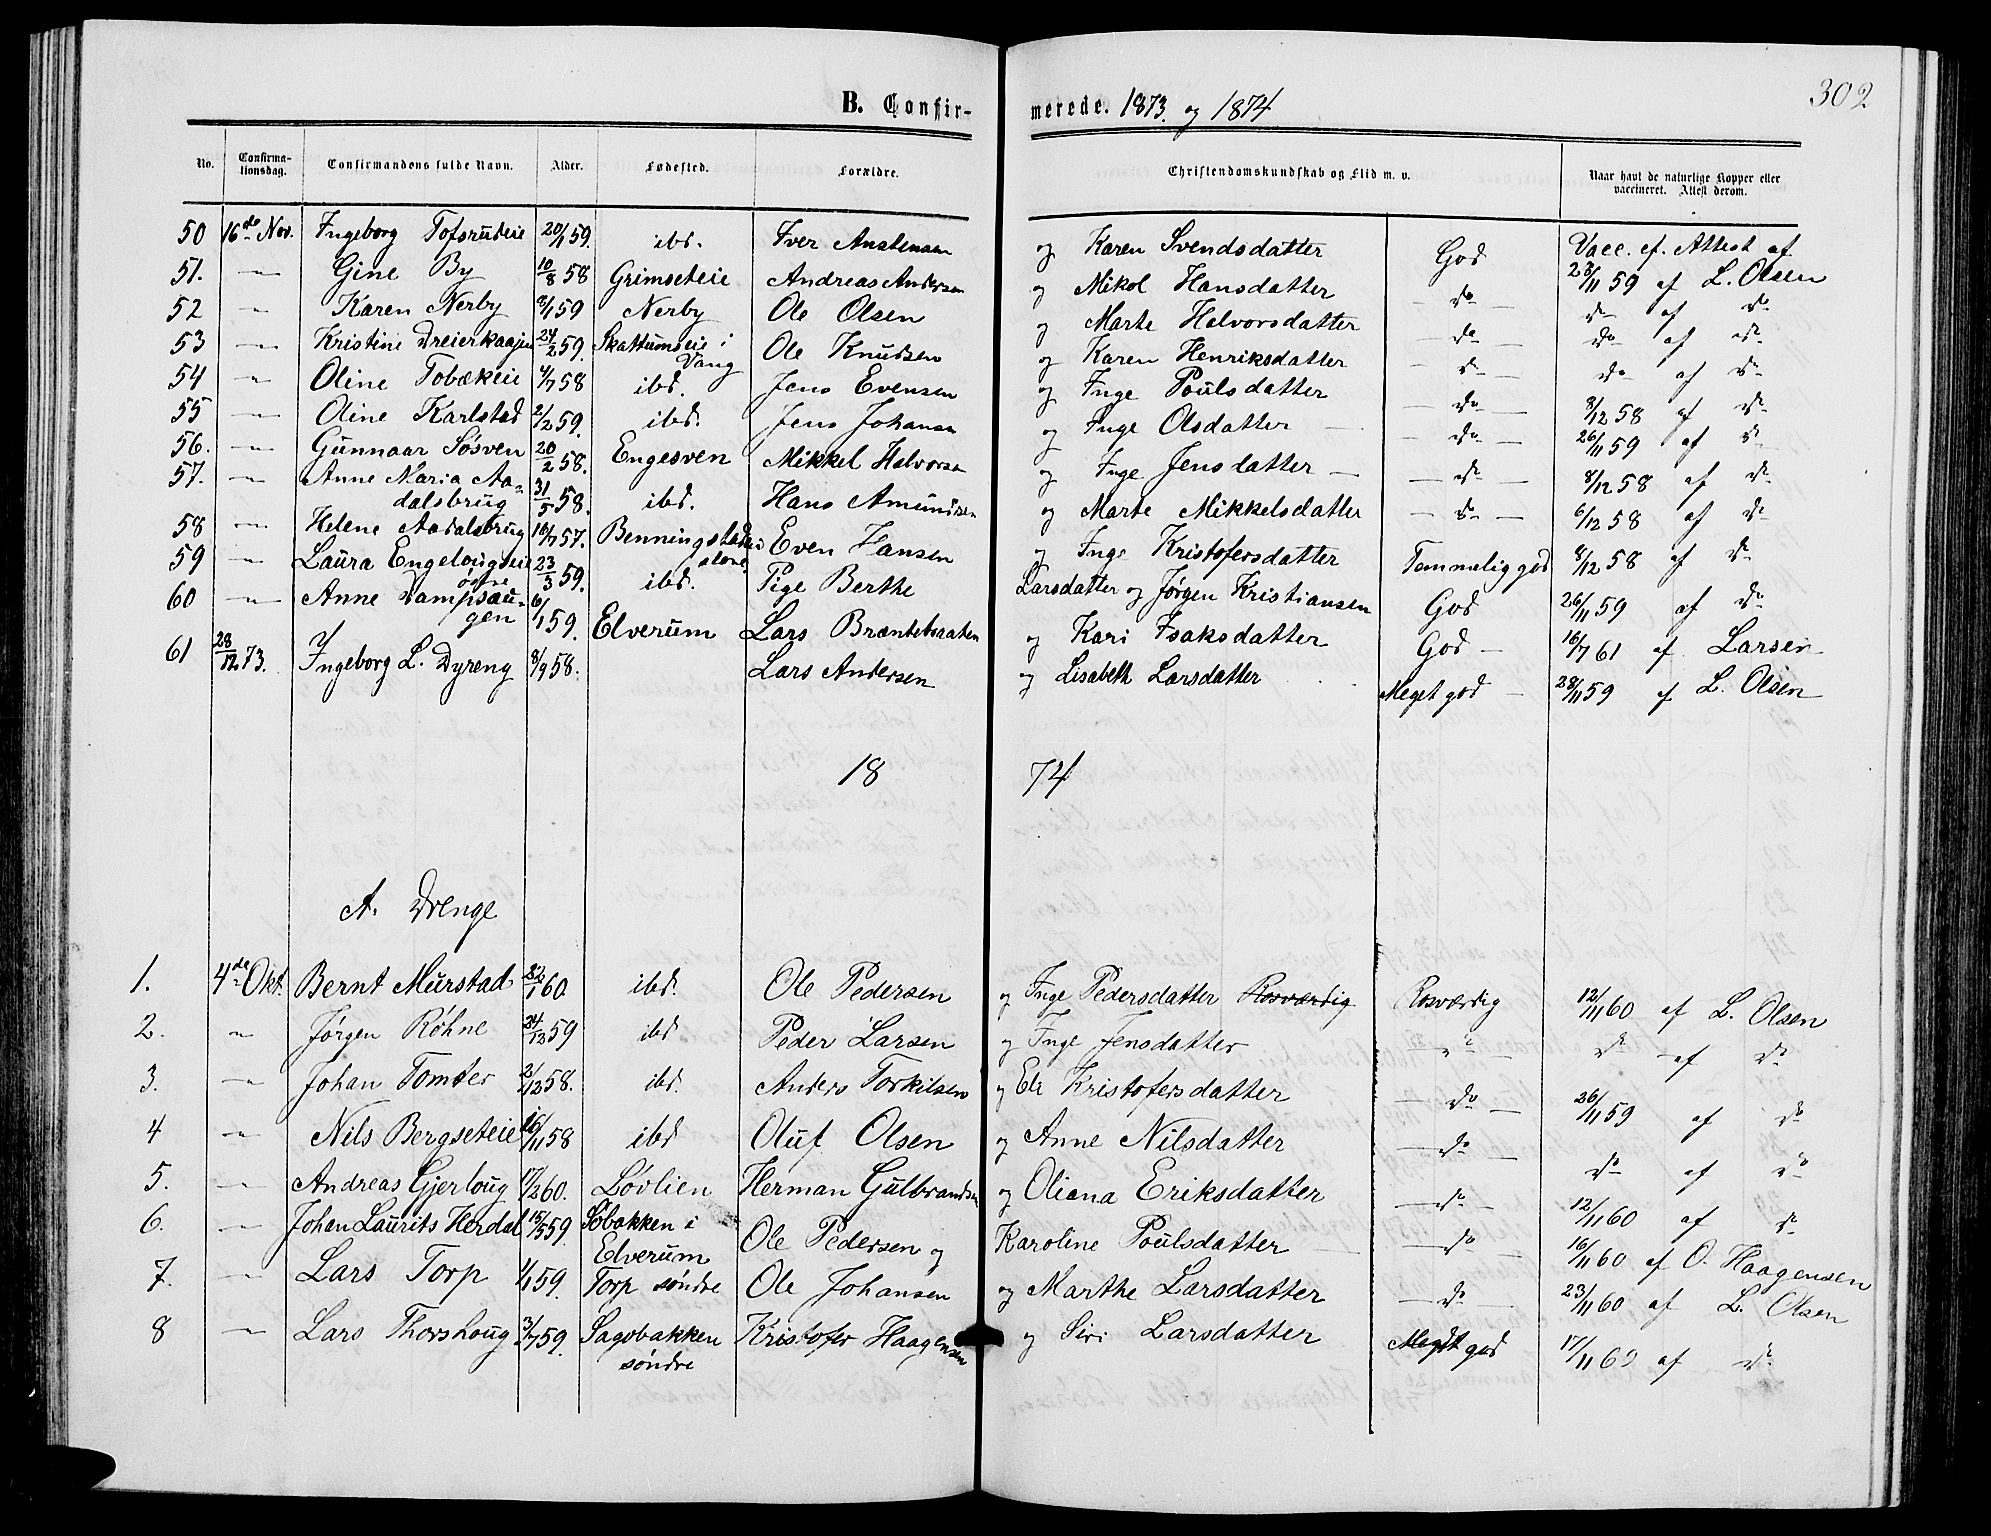 302
B. Confir- merede. 1873. og 1874
No. Confirma-tionsdag. Confirmandens fulde Navn. Alder. Fødested. Forældre. Christendomskundskab og Flid m. v. Naar havt de naturlige Kopper eller vaccineret. Attest derom.
50 16de Nov. Ingeborg Tofsrudeie 20/1 59. ibd. Iver Anstensen og Karen Svendsdatter God Vacc. ef. Attest af
51. — Gine By 10/8 58 Grimseteie Andreas Andersen og Mikol Hansdatter do 23/11 59 af L. Olsen
52 — Karen Nerby 8/1 59 Nerby Ole Olsen og Marte Halvorsdatter do do af do
53 — Kristine Dreierkaajen 24/2 59. Skattumseie i Vang Ole Knudsen og Karen Henriksdatter do do af do
54 — Oline Tobækeie 4/7 58 ibd. Jens Evensen og Inge Poulsdatter do do af do
55 — Oline Karlstad 2/2 59. ibd. Jens Johansen og Inge Olsdatter do 8/12 58 af do
56. — Gunnaar Søsven 20/2 58. Engesven Mikkel Halvorsen og Inge Jensdatter do 26/11 59 af do
57. — Anne Maria Aadalsbrug 31/5 58. ibd. Hans Amundsen og Marte Mikkelsdatter do 8/12 58 af do
58 — Helene Aadalsbrug 10/7 57. Benningstad Even Hansen og Inge Kristofersdatter Temmelig god 6/12 58 af do
59 — Laura Engelougseie øvre 23/3 59. ibd. Pige Berthe Larsdatter og Jørgen Kristiansen God 8/12 58 af do
60 — Anne Dampsaugen 6/1 59. Elverum Lars Brænteboraaten og Kari Isaksdatter God 26/11 59 af do
61 28/12 73. Ingeborg L. Dyreng 8/9 58. Lars Andersen og Lisabeth Larsdatter Meget god 16/7 61 af Larsen
28/11 59 af L. Olsen
18 74
A. Drenge
1. 4de Okt. Bernt Murstad 22/1 60 ibd. Ole Pedersen og Inge Pedersdatter Rosværdig Rosværdig 12/11 60 af L. Olsen
2. " Jørgen Røhne 24/12 59 ibd Peder Larsen og Inge Jensdatter " do af do
3. — Johan Tomter 2/12 58. ibd. Anders Torkilsen og Eli Kristofersdatter do 26/11 59 af do
4 — Nils Bergseteie 16/11 58 ibd Oluf Olsen og Anne Nilsdatter do do af do
5. — Andreas Gjerloug 17/2 60. Løvlien Herman Gulbrandsen og Oliana Eriksdatter do 12/11 60 af do
6. — Johan Laurits Herdal 15/5 59. Søbakken i Elverum Ole Pedersen og Karoline Poulsdatter do 16/11 60 af O. Haagensen
7. — Lars Torp 1/1 59. Torp søndre Ole Johansen og Marthe Larsdatter do 23/11 60 af L. Olsen
8 — Lars Thorshoug 3/7 59. Sagobakken søndre Kristofer Haagensen og Siri Larsdatter Meget god 17/11 60 af do